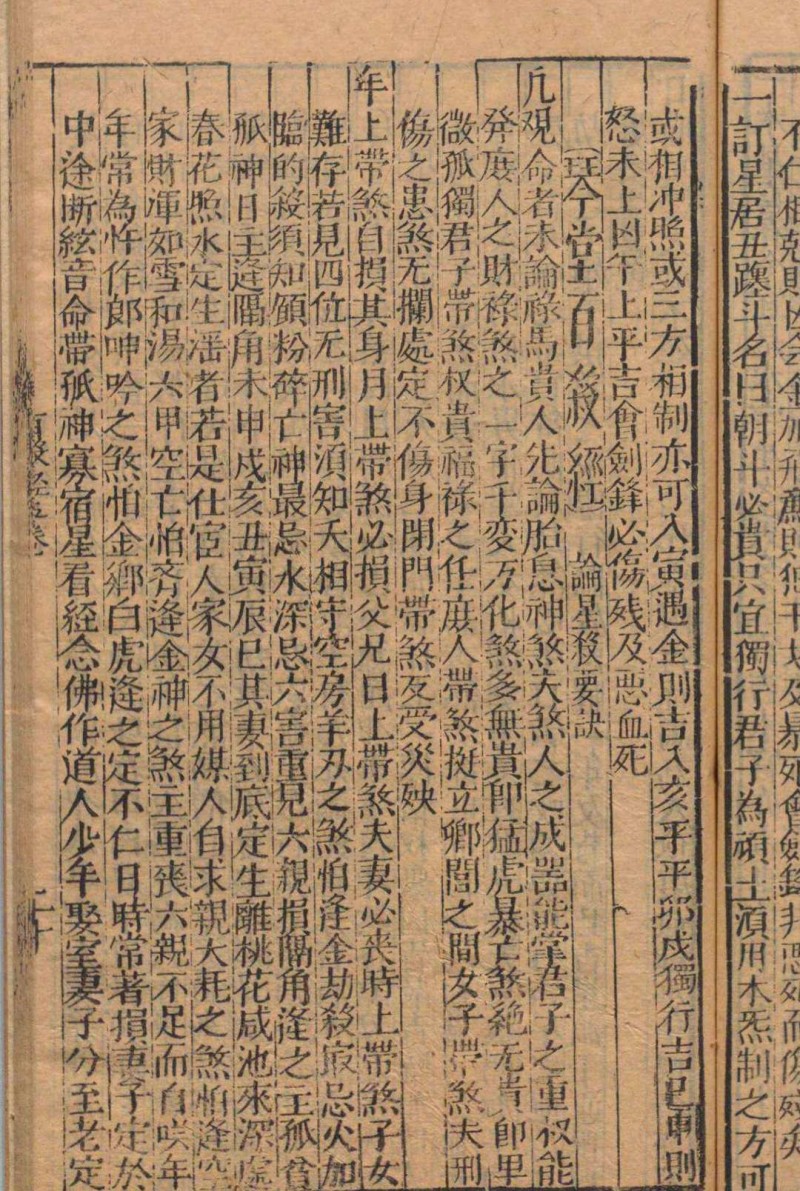 不仁相剋則凶会金加刑
一訂星居丑躔斗名曰朝斗必貴只宜獨行君子為碩士湏用木炁制之方可
或相冲照或三方相制亦可入寅遇金則吉入亥平平卯戌獨行吉巳申則
怒未上凶午上平吉會劍鋒必傷残及惡血死
琴堂百口 論星殺要訣
凢观命者未論祿馬貴人先論胎息神煞夫煞人之成噐能掌君子之重权能
発庻人之財祿煞之一字千变万化煞多無貴即猛虎暴亡煞絶无貴即里
微孤獨君子帶煞权貴福祿之任庻人帶煞挺立鄉閭之間女子帶煞夫刑
傷之患煞无攔處定不傷身閉門帶煞反受災殃
年上帶煞自損其身月上帶煞必損父兄日上帶煞夫妻必丧時上帶煞子女
難存若見四位无刑害湏知夭相守空房羊刃之煞怕逢金劫殺最忌火加
臨的殺須知頒粉碎亡神最忌水深忌六害重見六親損隔角逢之主孤貧
孤神日主逢隔角未申戍亥丑寅辰巳其妻到底定生離桃花咸池來深處
春花照水定生滛者若是仕宦人家女不用媒人自求親大耗之煞怕逢空
家財渾如雪和湯六甲空亡怕奇逢金神之煞主重丧六親不足而自咲年
年常為忤作郎呻吟之煞怕金鄉白虎逢之定不仁日時常著損妻子定於
中途断絃音命帶孤神寡宿星看經念佛作道人少年娶室妻子分至老定
卷